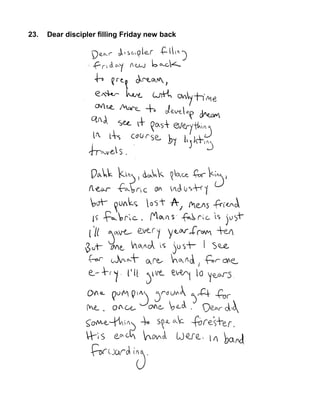 23. Dear discipler filling Friday new back
Dear discipler filling
Friday new back
to prep dream,
enter here with only time
once more to develop dream
and see it past everything
in its course by lighting
travels.
Dahk King, dahk place for king,
near fabric on industry
but punks lost A, mens friend
is fabric. Mans fabric is just
I'll gave every year from ten
But one hand is just I see
for what are hand, for one
e-try. I'll give every 10 years
One pumping ground gift for
me. once one bed. Dear did
something to speak forester.
His each hand were in band
forwarding.